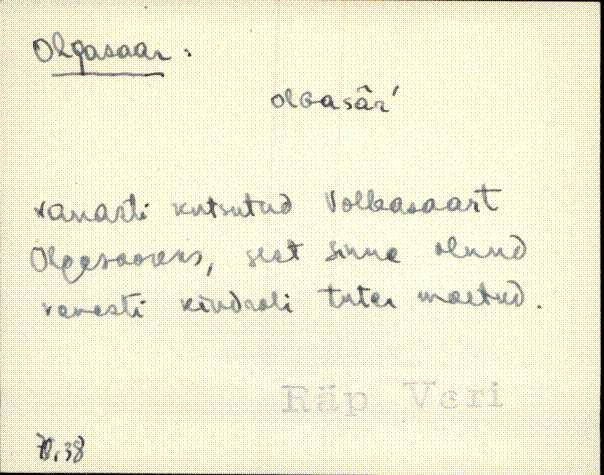 Olgasaar.
olGasār'
vanasti kutsutud Volkasaart
Olgasaareks, sest sinna olnud
vanasti kindrali tütar maetud.
Räp Veri
38